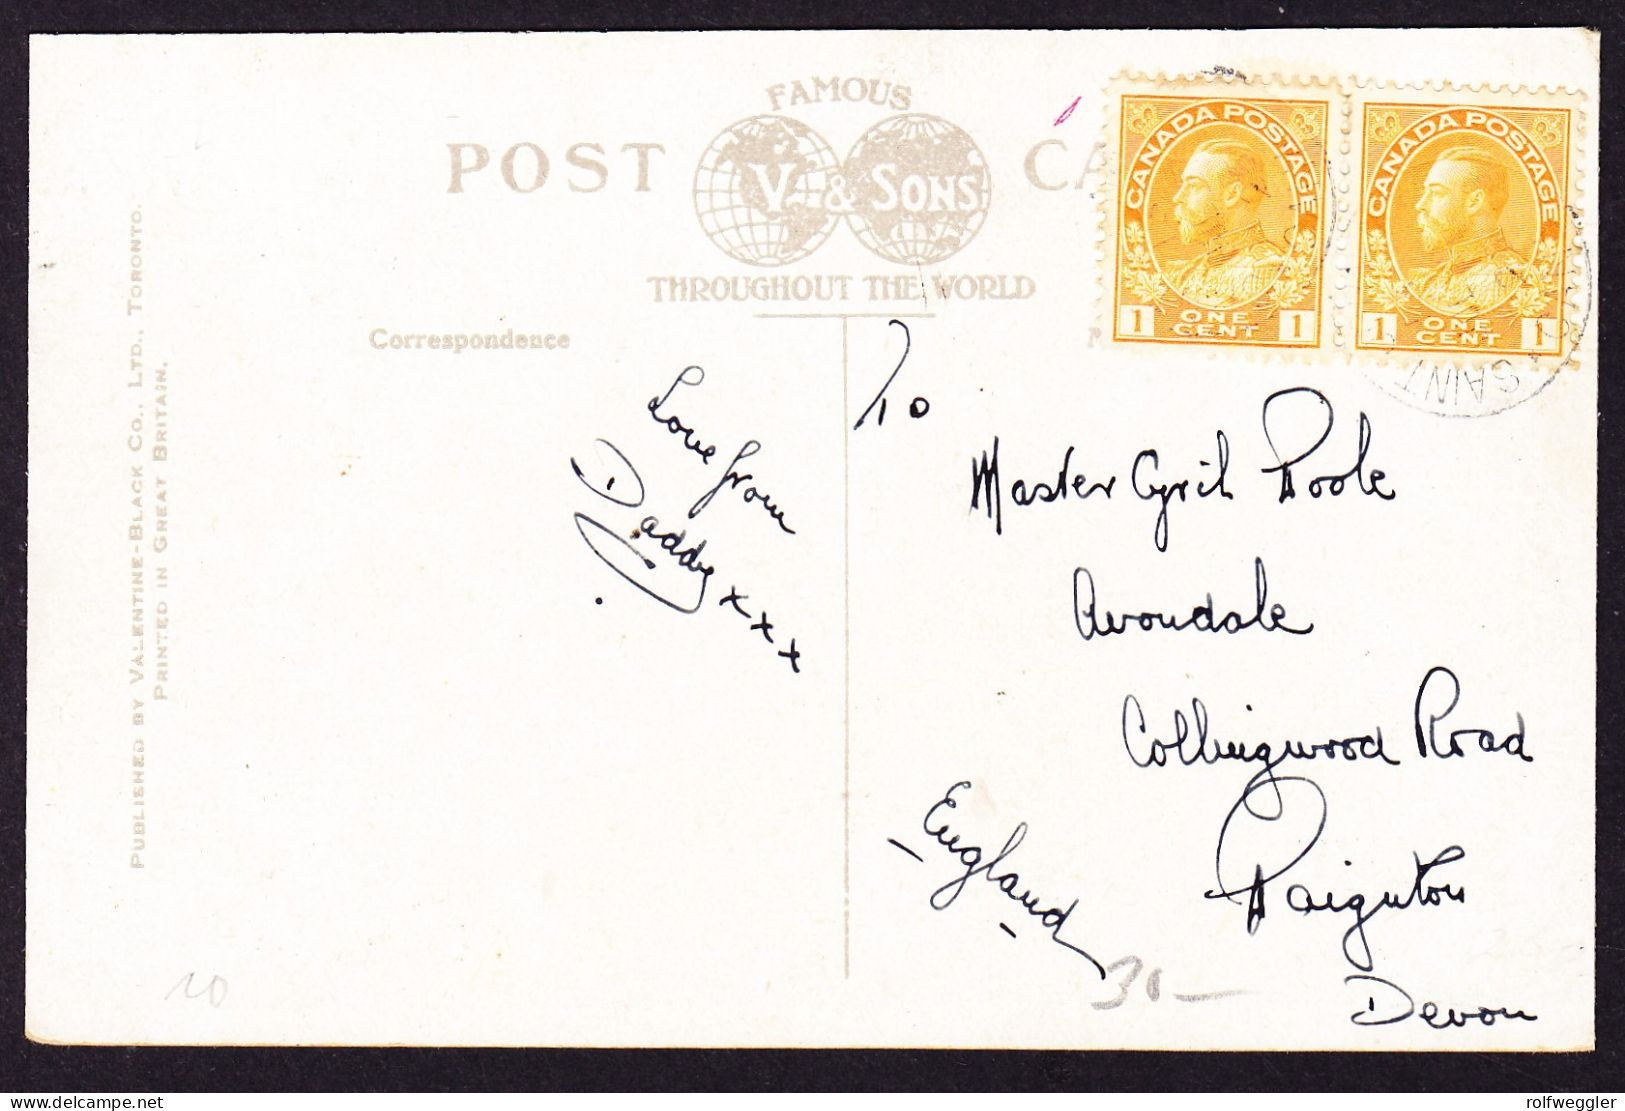 FAMOUS
POST
V & SONS
THROUGHOUT THE WORLD
Correspondence
PUBLISHED BY VALENTINE-BLACK CO., LTD., TORONTO.
PRINTED IN GREAT BRITAIN.
CANADA POSTAGE
1 ONE CENT 1
CANADA POSTAGE
1 ONE CENT 1
SAINT
Love from
Daddy x x x
To
Master Cyril Poole
Avondale
Collingwood Road
Paignton
Devon
England
30-
10
delcampe.net
rolfweggler